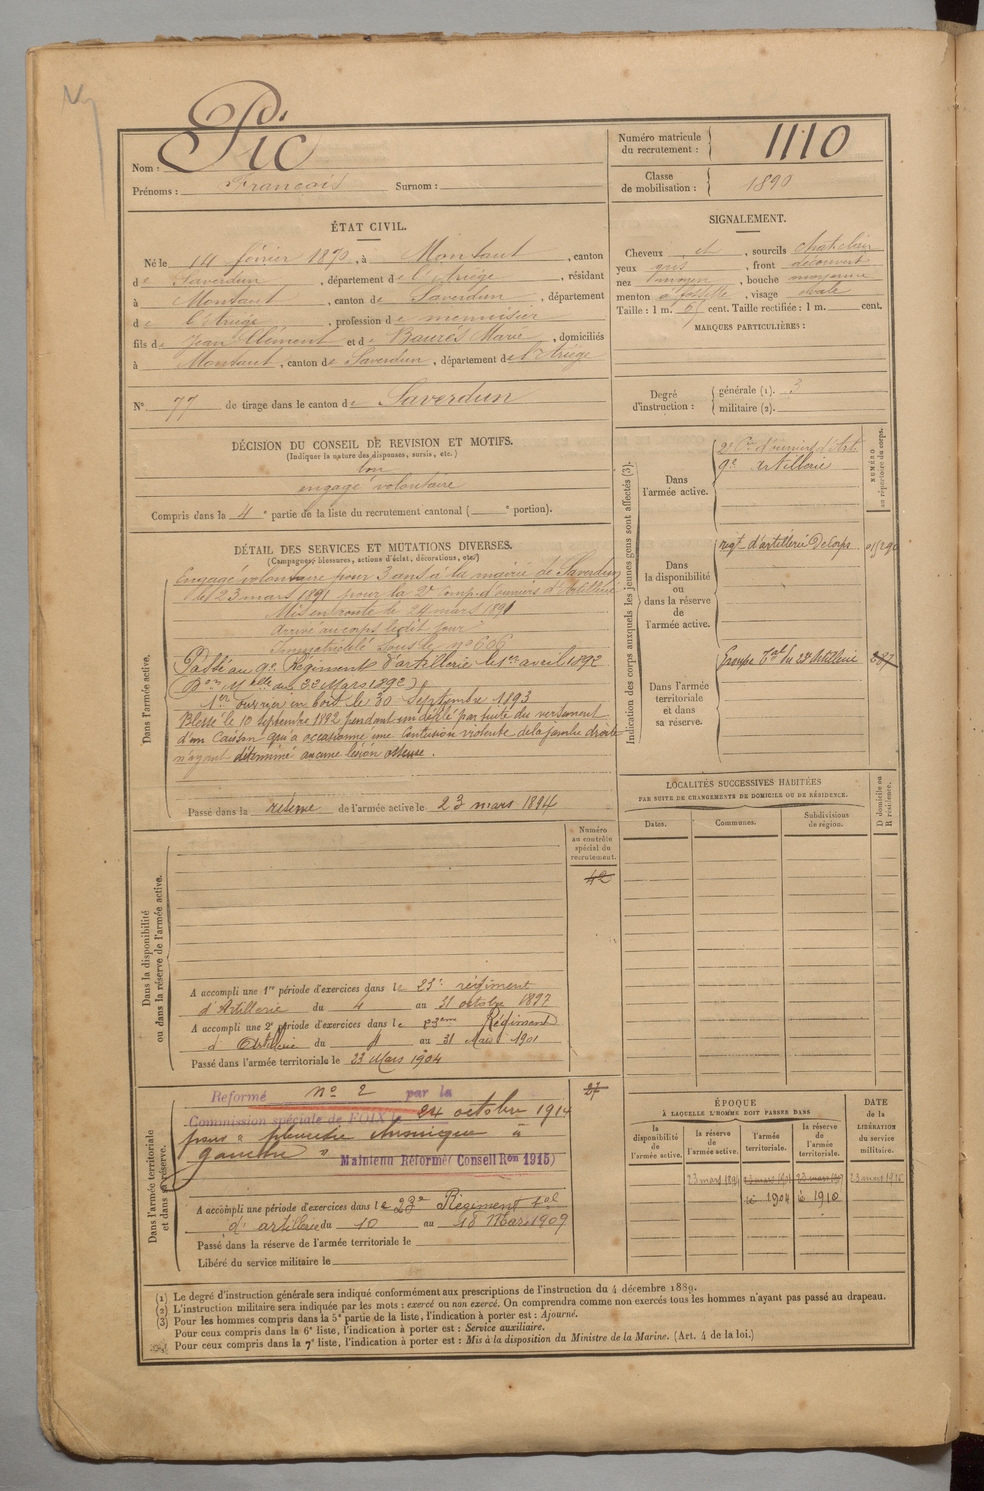 Pic
Nom :
Prénoms : François Surnom :
Numéro matricule du recrutement : 1110
Classe de mobilisation : 1890
ÉTAT CIVIL.
Né le 14 février 1870, à Montaut, canton
de Saverdun, département de l'Ariège, résidant
à Montaut, canton de Saverdun, département
de l'Ariège, profession de menuisier
fils de Jean Clément et de Baurès Marie, domiciliés
à Montaut, canton de Saverdun, département de l'Ariège
N° 77 de tirage dans le canton de Saverdun
SIGNALEMENT.
Cheveux et, sourcils chatclair
yeux gris, front découvert
nez moyen, bouche moyenne
menton à fossette, visage ovale
Taille : 1 m. cent. Taille rectifiée : 1 m. cent.
MARQUES PARTICULIÈRES :
Degré d'instruction : générale (1). 3
militaire (2).
DÉCISION DU CONSEIL DE REVISION ET MOTIFS.
(Indiquer la nature des dispenses, sursis, etc.)
bon
engagé volontaire
Compris dans la 4e partie de la liste du recrutement cantonal ( e portion).
DÉTAIL DES SERVICES ET MUTATIONS DIVERSES.
(Campagnes, blessures, actions d'éclat, décorations, etc.)
Dans l'armée active.
Engagé volontaire pour 3 ans à la mairie de Saverdun
le 23 mars 1891 pour la 2e Comp. d'ouvriers d'Artillerie
Mis en route le 24 mars 1891
Arrivé au corps ledit jour
Immatriculé sous le n° 606
Passé au 9e Régiment d'artillerie le 1er avril 1892
(Don Mlle du 22 Mars 1892)
1er ouvrier en bois le 30 Septembre 1893
Blessé le 10 septembre 1892 pendant un défilé par suite du versement
d'un Caisson qui a occasionné une contusion violente de la jambe droite
n'ayant déterminé aucune lésion osseuse.
Passé dans la réserve de l'armée active le 23 mars 1894
Indication des corps auxquels les jeunes gens sont affectés (3).
NUMÉRO au répertoire du corps.
Dans l'armée active.
2e Cie d'ouvriers d'Art.
9e Artillerie
Dans la disponibilité ou dans la réserve de l'armée active.
regt d'artillerie De Corps
Dans l'armée territoriale et dans sa réserve.
Groupe Tal du 23e Artillerie 287
LOCALITÉS SUCCESSIVES HABITÉES
PAR SUITE DE CHANGEMENTS DE DOMICILE OU DE RÉSIDENCE.
Dates. Communes. Subdivisions de région. D domicile ou R résidence.
Dans la disponibilité ou dans la réserve de l'armée active.
Numéro au contrôle spécial du recrutement.
42
A accompli une 1re période d'exercices dans le 23e régiment
d'Artillerie du 4 au 31 octobre 1897
A accompli une 2e période d'exercices dans le 23ème Régiment
d'Artillerie du 4 au 31 Mai 1901
Passé dans l'armée territoriale le 23 Mars 1904
Dans l'armée territoriale et dans sa réserve.
27
Reformé n° 2 par la
Commission spéciale de FOIX 24 octobre 1914
pour " pleurésie chronique à
gauche "
Maintenu Réformé (Conseil Ron 1915)
A accompli une période d'exercices dans le 23e Régiment Tal
d'artillerie du 10 au 18 Mars 1909
Passé dans la réserve de l'armée territoriale le
Libéré du service militaire le
ÉPOQUE
À LAQUELLE L'HOMME DOIT PASSER DANS
la disponibilité de l'armée active. la réserve de l'armée active. l'armée territoriale. la réserve de l'armée territoriale.
DATE de la LIBÉRATION du service militaire.
23 mars 1894 23 mars 23 mars 23 mars 1916
1904 1910
(1) Le degré d'instruction générale sera indiqué conformément aux prescriptions de l'instruction du 4 décembre 1889.
(2) L'instruction militaire sera indiquée par les mots : exercé ou non exercé. On comprendra comme non exercés tous les hommes n'ayant pas passé au drapeau.
(3) Pour les hommes compris dans la 5e partie de la liste, l'indication à porter est : Ajourné.
Pour ceux compris dans la 6e liste, l'indication à porter est : Service auxiliaire.
Pour ceux compris dans la 7e liste, l'indication à porter est : Mis à la disposition du Ministre de la Marine. (Art. 4 de la loi.)